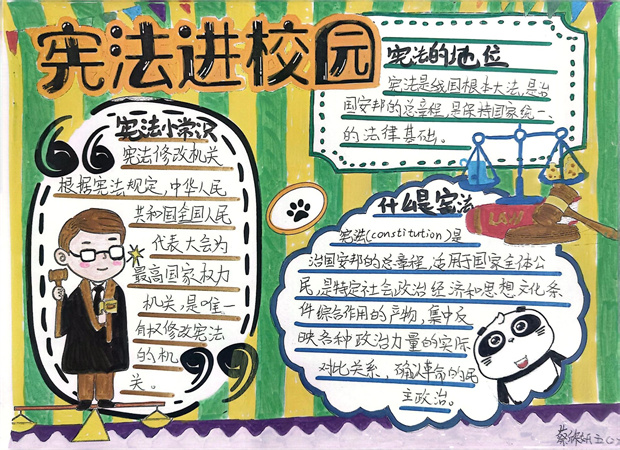 宪法进校园
宪法的地位
宪法是我国根本大法,是治
国安邦的总章程,是保持国家统一、
的法律基础。
宪法小常识
宪法修改机关
根据宪法规定,中华人民
共和国全国人民
代表大会为
最高国家权力
机关,是唯一
有权修改宪法
的机
关。
什么是宪法
宪法(constitution)是
治国安邦的总章程,适用于国家全体公
民,是特定社会政治经济和思想文化条
件综合作用的产物,集中反
映各种政治力量的实际
对比关系,确认革命的民
主政治。
LAW